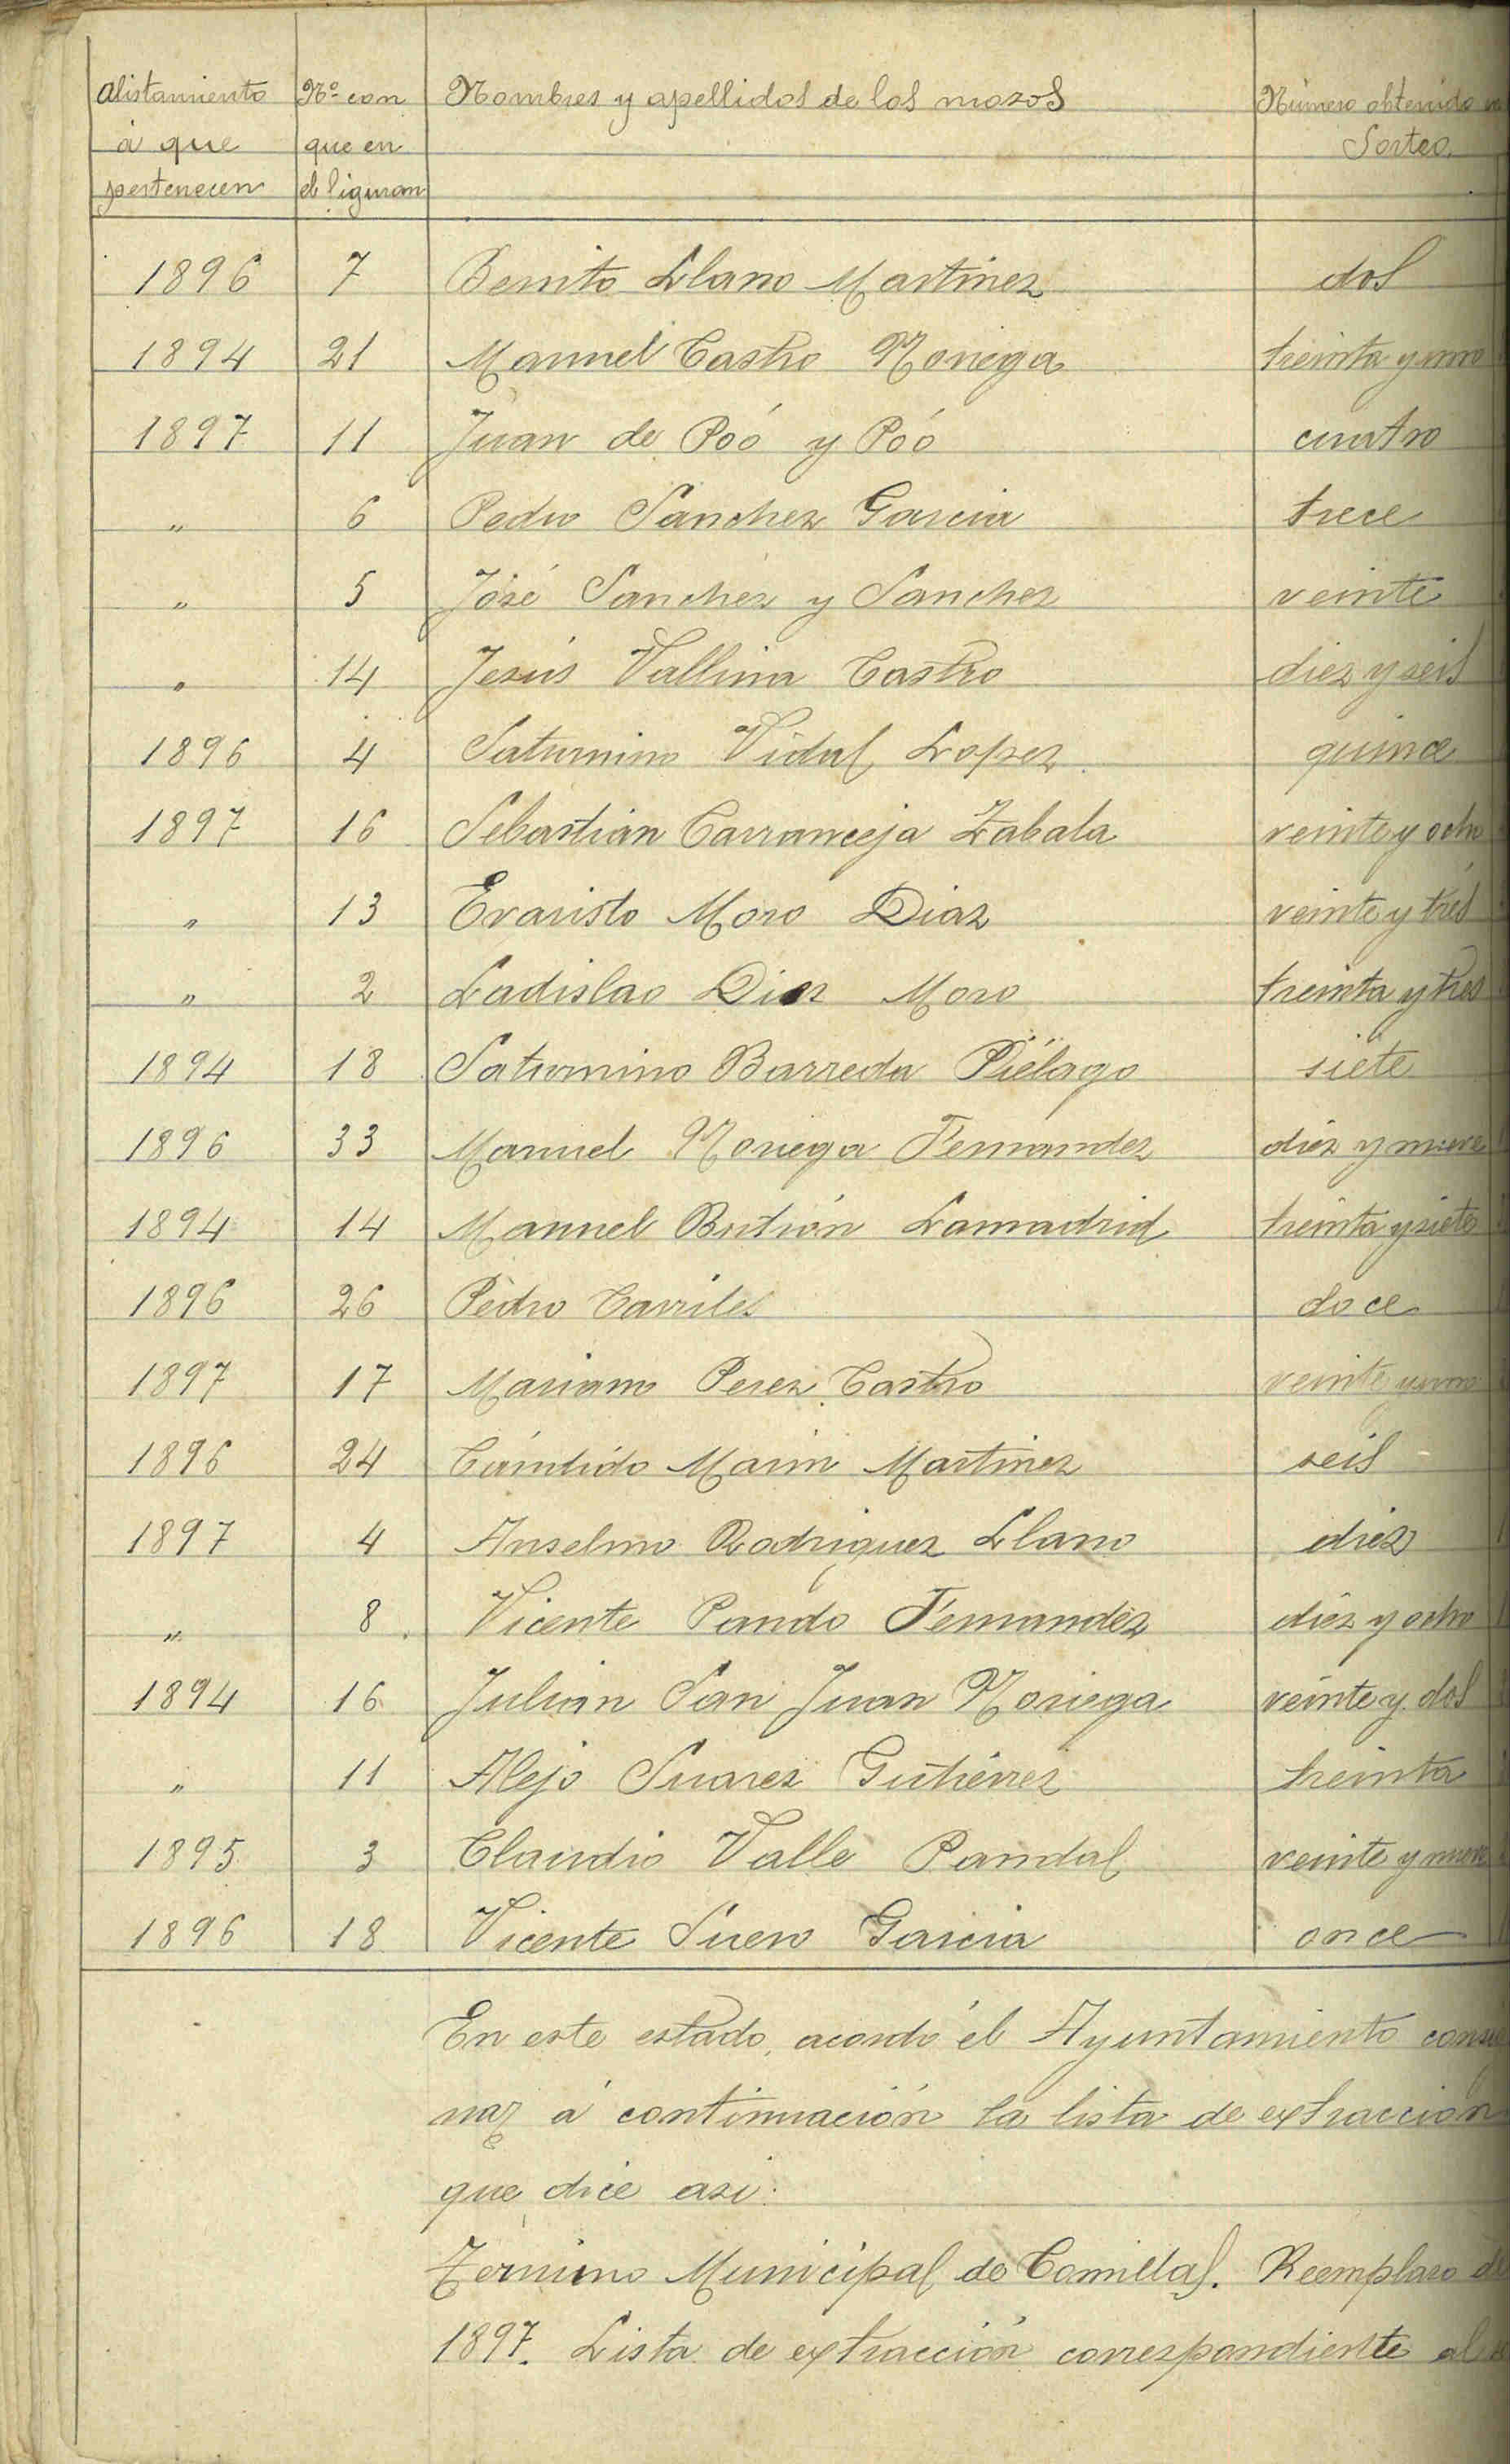 Alistamiento Nº con Nombres y apellidos de los mozos Número obtenido
á que que en Sorteo.
pertenecen el figuran
1896 7 Benito Llano Martinez dos
1894 21 Manuel Castro Noriega treinta y uno
1897 11 Juan de Poó y Poó cuatro
" 6 Pedro Sanchez Garcia trece
" 5 José Sanchez y Sanchez veinte
" 14 Jesús Vallina Castro diez y seis
1896 4 Saturnino Vidal Lopez quince
1897 16 Sebastián Carranceja Zabala veinte y ocho
" 13 Evaristo Moro Diaz veinte y tres
" 2 Ladislao Diaz Moro treinta y tres
1894 18 Saturnino Barreda Piélago siete
1896 33 Manuel Noriega Fernandez diez y nueve
1894 14 Manuel Bustión Lamadrid treinta y siete
1896 26 Pedro Carriles doce
1897 17 Mariano Perez Castro veinte y uno
1896 24 Cándido Marin Martinez seis
1897 4 Anselmo Rodriguez Llano diez
" 8 Vicente Pando Fernandez diez y ocho
1894 16 Julián San Juan Noriega veinte y dos
" 11 Alejo Suarez Gutiérrez treinta
1895 3 Claudio Valle Pandal veinte y nueve
1896 18 Vicente Suero Garcia once
En este estado, acordó el Ayuntamiento consig
nar á continuación la lista de extracción
que dice asi:
Término Municipal de Comillas. Reemplazo de
1897. Lista de extracción correspondiente al